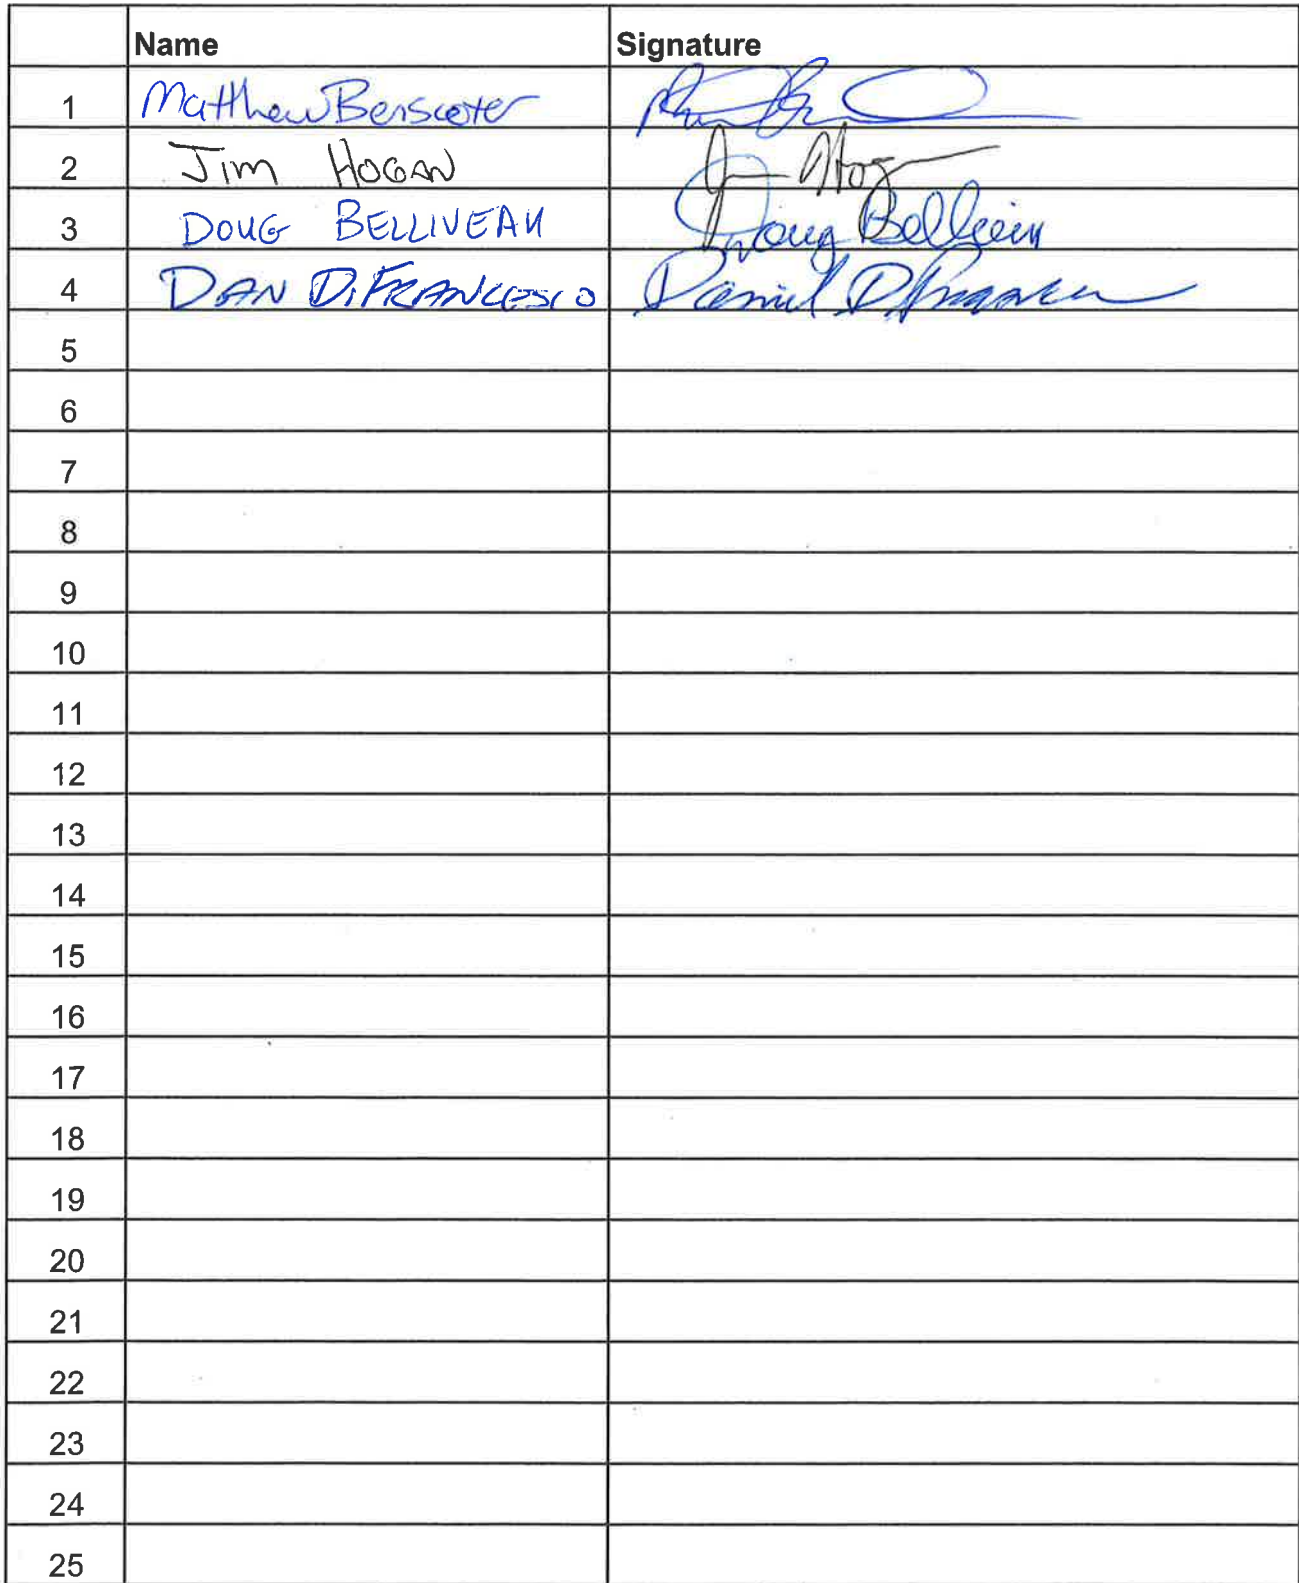 Name Signature
1 Matthew Benscoter
2 Jim HOGAN Jim Hog
3 DOUG BELLIVEAU Doug Belliveau
4 DAN DiFRANCESCO Daniel
5
6
7
8
9
10
11
12
13
14
15
16
17
18
19
20
21
22
23
24
25